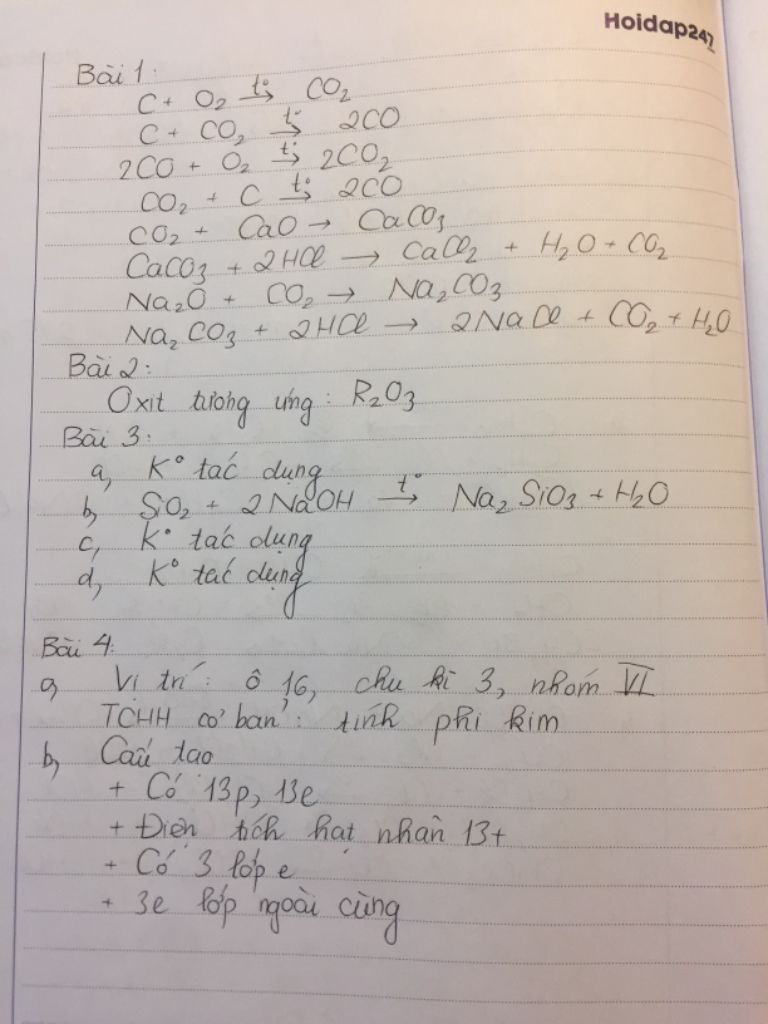 Hoidap247
Bài 1:
C + O₂ →(t°) CO₂
C + CO₂ →(t°) 2CO
2CO + O₂ →(t°) 2CO₂
CO₂ + C →(t°) 2CO
CO₂ + CaO → CaCO₃
CaCO₃ + 2HCl → CaCl₂ + H₂O + CO₂
Na₂O + CO₂ → Na₂CO₃
Na₂CO₃ + 2HCl → 2NaCl + CO₂ + H₂O
Bài 2:
Oxit tương ứng: R₂O₃
Bài 3:
a, K° tác dụng
b, SiO₂ + 2NaOH →(t°) Na₂SiO₃ + H₂O
c, K° tác dụng
d, K° tác dụng
Bài 4:
a, Vị trí: ô 16, chu kì 3, nhóm VI
TCHH cơ bản: tính phi kim
b, Cấu tạo
+ Có 13p, 13e
+ Điện tích hạt nhân 13+
+ Có 3 lớp e
+ 3e lớp ngoài cùng